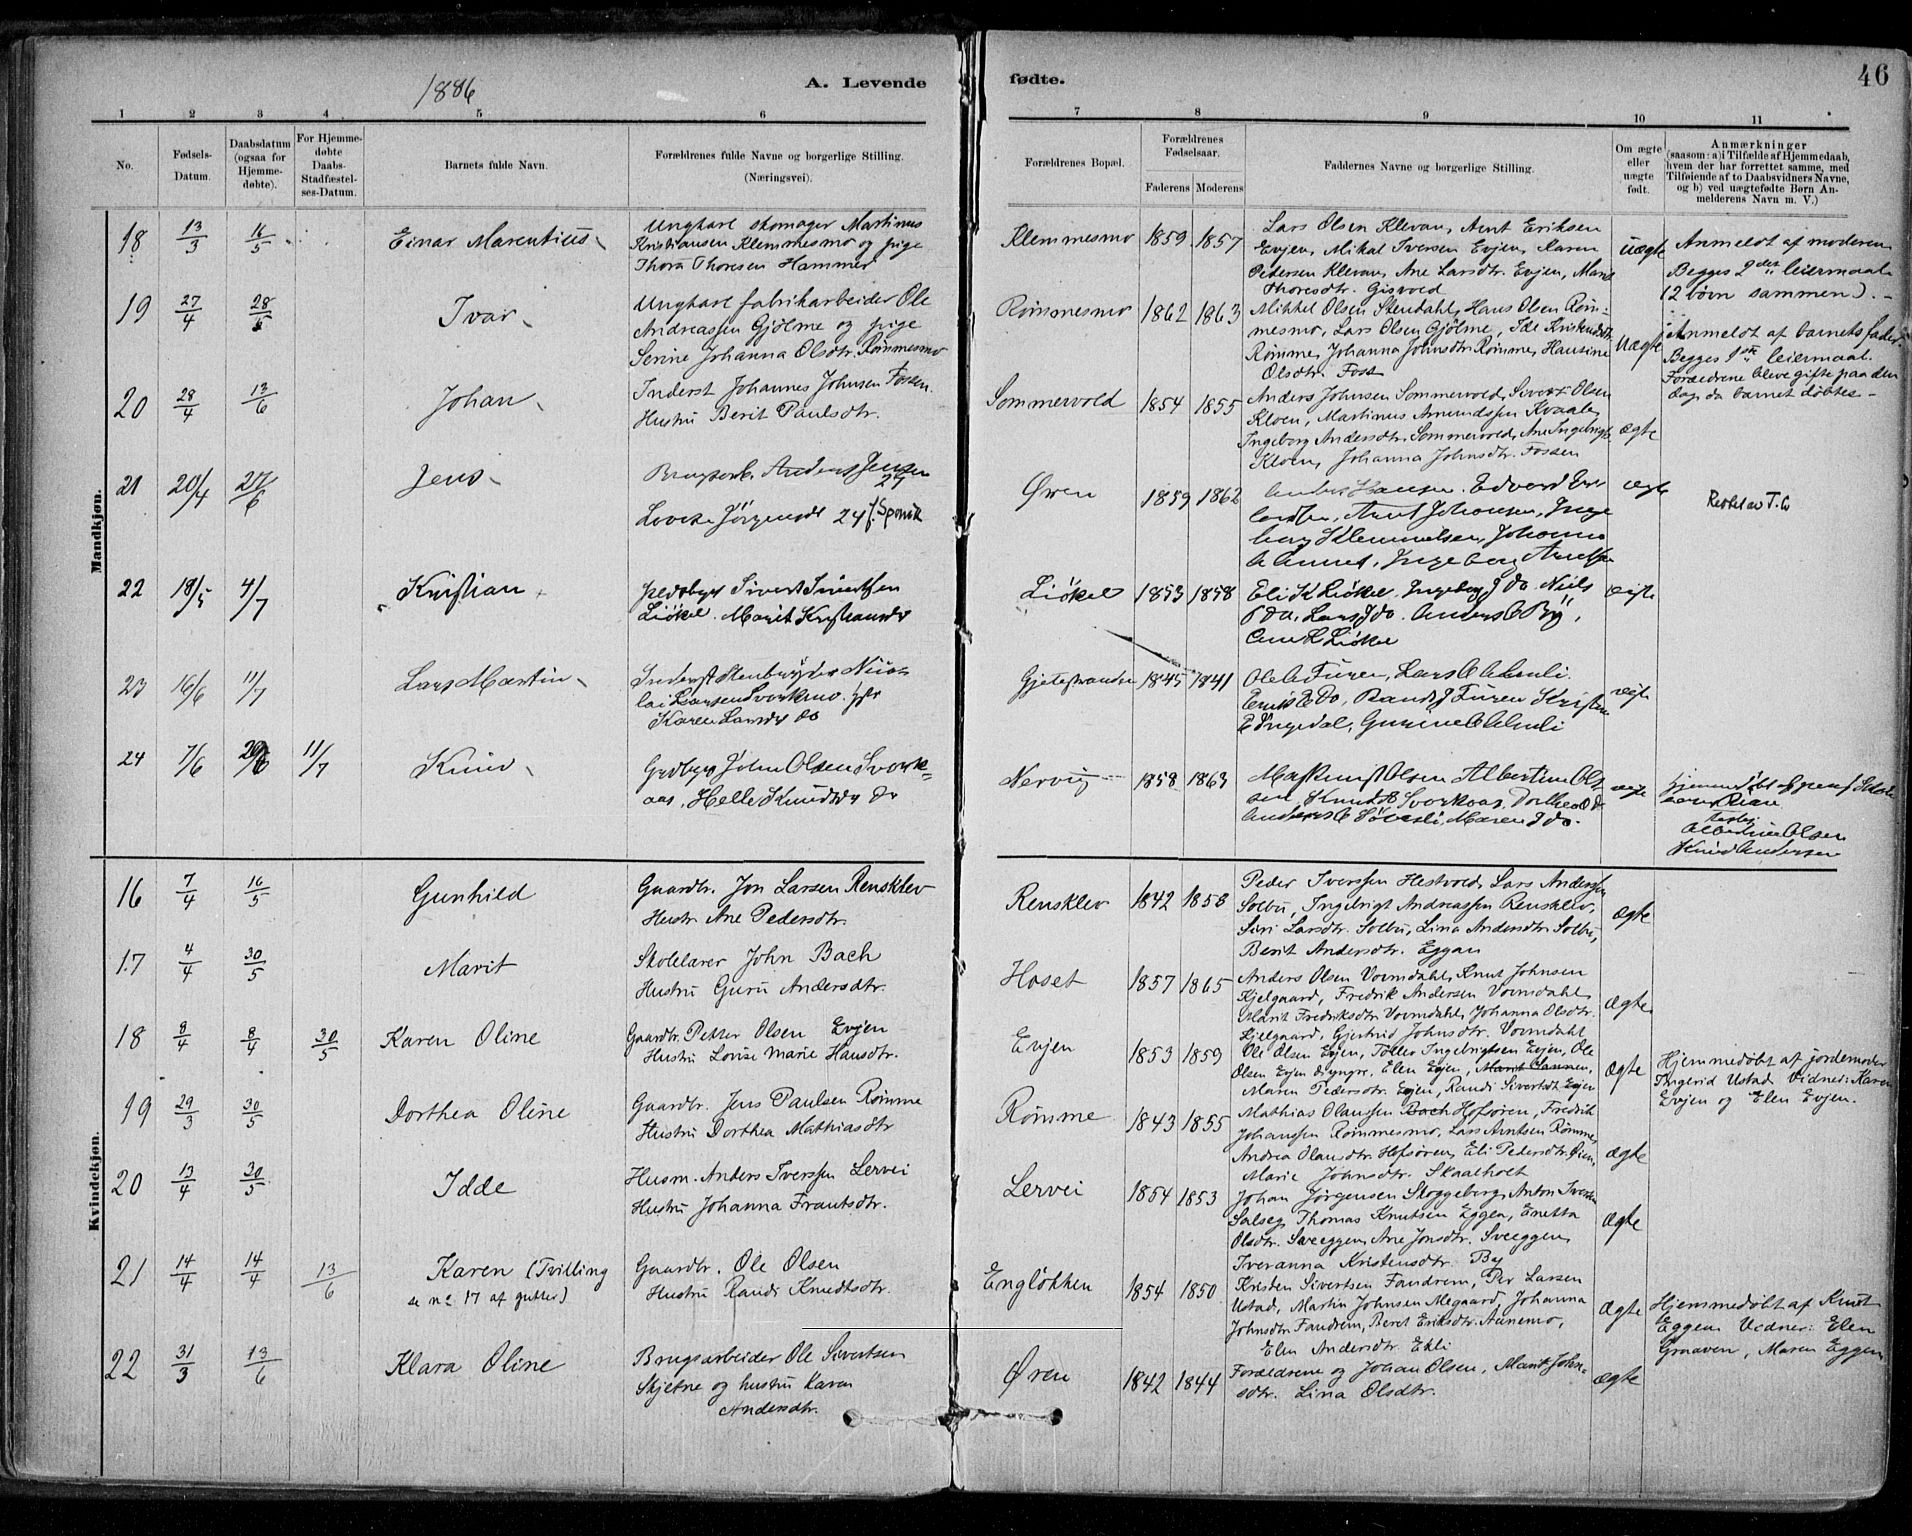 1886
A. Levende
fødte.
46
1 2 3 4 5 6 7 8 9 10 11
No.
Fødsels-
Datum.
Daabsdatum
(ogsaa for
Hjemme-
døbte).
For Hjemme-
døbte
Daabs-
Stadfæstel-
ses-Datum.
Barnets fulde Navn.
Forældrenes fulde Navne og borgerlige Stilling.
(Næringsvei).
Forældrenes Bopæl.
Forældrenes
Fødselsaar.
Faderens Moderens
Faddernes Navne og borgerlige Stilling.
Om ægte
eller
uægte
født.
Anmærkninger
(saasom: a) i Tilfælde af Hjemmedaab,
hvem der har forrettet samme, med
Tilføiende af to Daabsvidners Navne,
og b) ved uægtefødte Børn An-
melderens Navn m. V.)
Mandkjøn.
18 13/3 16/5 Einar Marentius
Ungkarl skomager Martinus
Kristiansen Klemmesmo og pige
Thora Thoresen Hammer
Klemmesmo 1859 1857
Lars Olsen Klevan, Arnt Eriksen
Evjen, Mikal Iversen Evjen, Karen
Pedersen Klevan, Ane Larsdtr. Evjen, Marit
Thoresdtr. Gisvold
uægte
Anmeldt af moderen
Begges 2det leiermaal
(2 børn sammen).
19 27/4 28/5 Ivar
Ungkarl fabrikarbeider Ole
Andreassen Gjølme og pige
Serine Johanna Olsdtr. Rømmesmo
Rømmesmo 1862 1863
Mikkel Olsen Stendahl, Hans Olsen Røm-
mesmo, Lars Olsen Gjølme, Ide Kristensdtr.
Rømme, Johanna Johnsdtr. Rømme, Hansine
Olsdtr. Foss
Uægte
Anmeldt af barnets fader.
Begges 1ste leiermaal.
Forældrene bleve gifte paa den
dag da barnet døbtes
20 28/4 13/6 Johan
Inderst Johannes Johnsen Fossen
Hustru Berit Paulsdtr.
Sommervold 1854 1855
Anders Johnsen Sommervold, Sivert Olsen
Kloen, Martinus Amundssen Kvaale,
Ingeborg Andersdtr. Sommervold, Ane Ingebrigtsdtr.
Kloen, Johanna Johnsdtr. Fossen
ægte
21 20/4 27/6 Jens
Anders Jensen
27
24
Øren 1859 1862
Anders Hansen, Edvard
Arnt Johansen, Inge
borg Klemmetsen, Johanna
Ingeborg
ægte
22 18/5 4/7 Kristian
Sivert Sivertsen
Liøkel. Marit Kristiansdr
Liøkel 1853 1858
Eli K Liøkel, Ingeborg J do. Niels
do, Lars J do. Anders C Bø,
Liøkel
ægte
23 16/6 11/7 Lars Martin
Inderst Stenbryder Nico-
lai Larsen Svorkmo.
Karen Larsdr do
Gjetestranden 1845 1841
Ole A Furen, Lars
Erik E Do, Rand J Furen Kristen
E Ingdal, Gurine
ægte
24 7/6 20/6 11/7 Knud
Grdbyr John Olsen Svork-
aas, Helle Knudsdr do
Nervig 1858 1863
Olsen Albertine Ol-
sen, Knud Svorkaas, Dorthea do
Maren J do.
ægte
Albertine Olsen
Knud Andersen
Kvindekjøn.
16 7/4 16/5 Gunhild
Gaardbr. Jon Larsen Rensklev
Hustr. Ane Pedersdtr.
Rensklev 1842 1858
Peder Iverssen Hestvold, Lars Anderssen
Solbu, Ingebrigt Andreassen Rensklev,
Siri Larsdtr. Solbu, Lina Andersdtr. Solbu,
Berit Andersdtr. Eggan
ægte
17 4/4 30/5 Marit
Skolelærer John Bach
Hustru Guru Andersdtr.
Hoset 1857 1865
Anders Olsen Vormdahl, Knut Johnsen
Kjelgaard, Fredrik Andersen Vormdahl,
Marit Fredriksdtr. Vormdahl, Johanna Olsdtr.
Kjelgaard, Gjertrud Johnsdtr. Vormdahl
ægte
18 8/4 8/4 30/5 Karen Oline
Gaardbr. Petter Olsen Evjen
Hustru Lovise Marie Hansdtr.
Evjen 1853 1859
Ole Olsen Evjen, Toller Ingebrigtsen Evjen, Ole
Olsen Evjen d yngre, Elen Evjen,
Maren Pedersdtr. Evjen, Randi Sivertsdtr. Evjen
ægte
Hjemmedøbt af jordemoder
Ingerid Ustad Vidner: Karen
Evjen og Elen Evjen.
19 29/3 30/5 Dorthea Oline
Gaardbr. Jens Paulsen Rømme
Hustru Dorthea Mathiasdtr
Rømme 1843 1855
Mathias Olaussen Bach Hofsøren, Fredrik
Johanssen Rømmesmo, Lars Arntsen Rømme,
Andrea Olausdtr. Hofsøren, Eli Pedersdtr. Øien,
Marie Johnsdtr. Skaalholt
ægte
20 13/4 30/5 Idde
Husm. Anders Iverssen Lervei
Hustru Johanna Frantsdtr.
Lervei 1854 1853
Johan Jørgensen Skoggeberg, Anton Iversen
Salseg, Thomas Knutsen Eggen, Enetta
Olsdtr. Sveeggen, Ane Jonsdtr. Sveeggen,
Iveranna Kristensdtr. By
ægte
21 14/4 14/4 13/6 Karen (Tvilling
se no 17 af gutter)
Gaardbr. Ole Olsen
Hustru Randi Knudtsdtr.
Engløkken 1854 1850
Kristen Sivertsen Fandrem, Per Larsen
Ustad, Martin Johnsen Megaard, Johanna
Johnsdtr Fandrem, Beret Eriksdtr. Aunemo,
Elen Andersdtr. Ekli
ægte
Hjemmedøbt af Knut
Eggen Vidner: Elen
Graaven, Maren Eggen
22 31/3 13/6 Klara Oline
Brugsarbeider Ole Sivertsen
Skjetne og hustru Karen
Andersdtr.
Øren 1842 1844
Forældrene og Johan Olsen, Marit John-
sdtr. Lina Olsdtr.
ægte